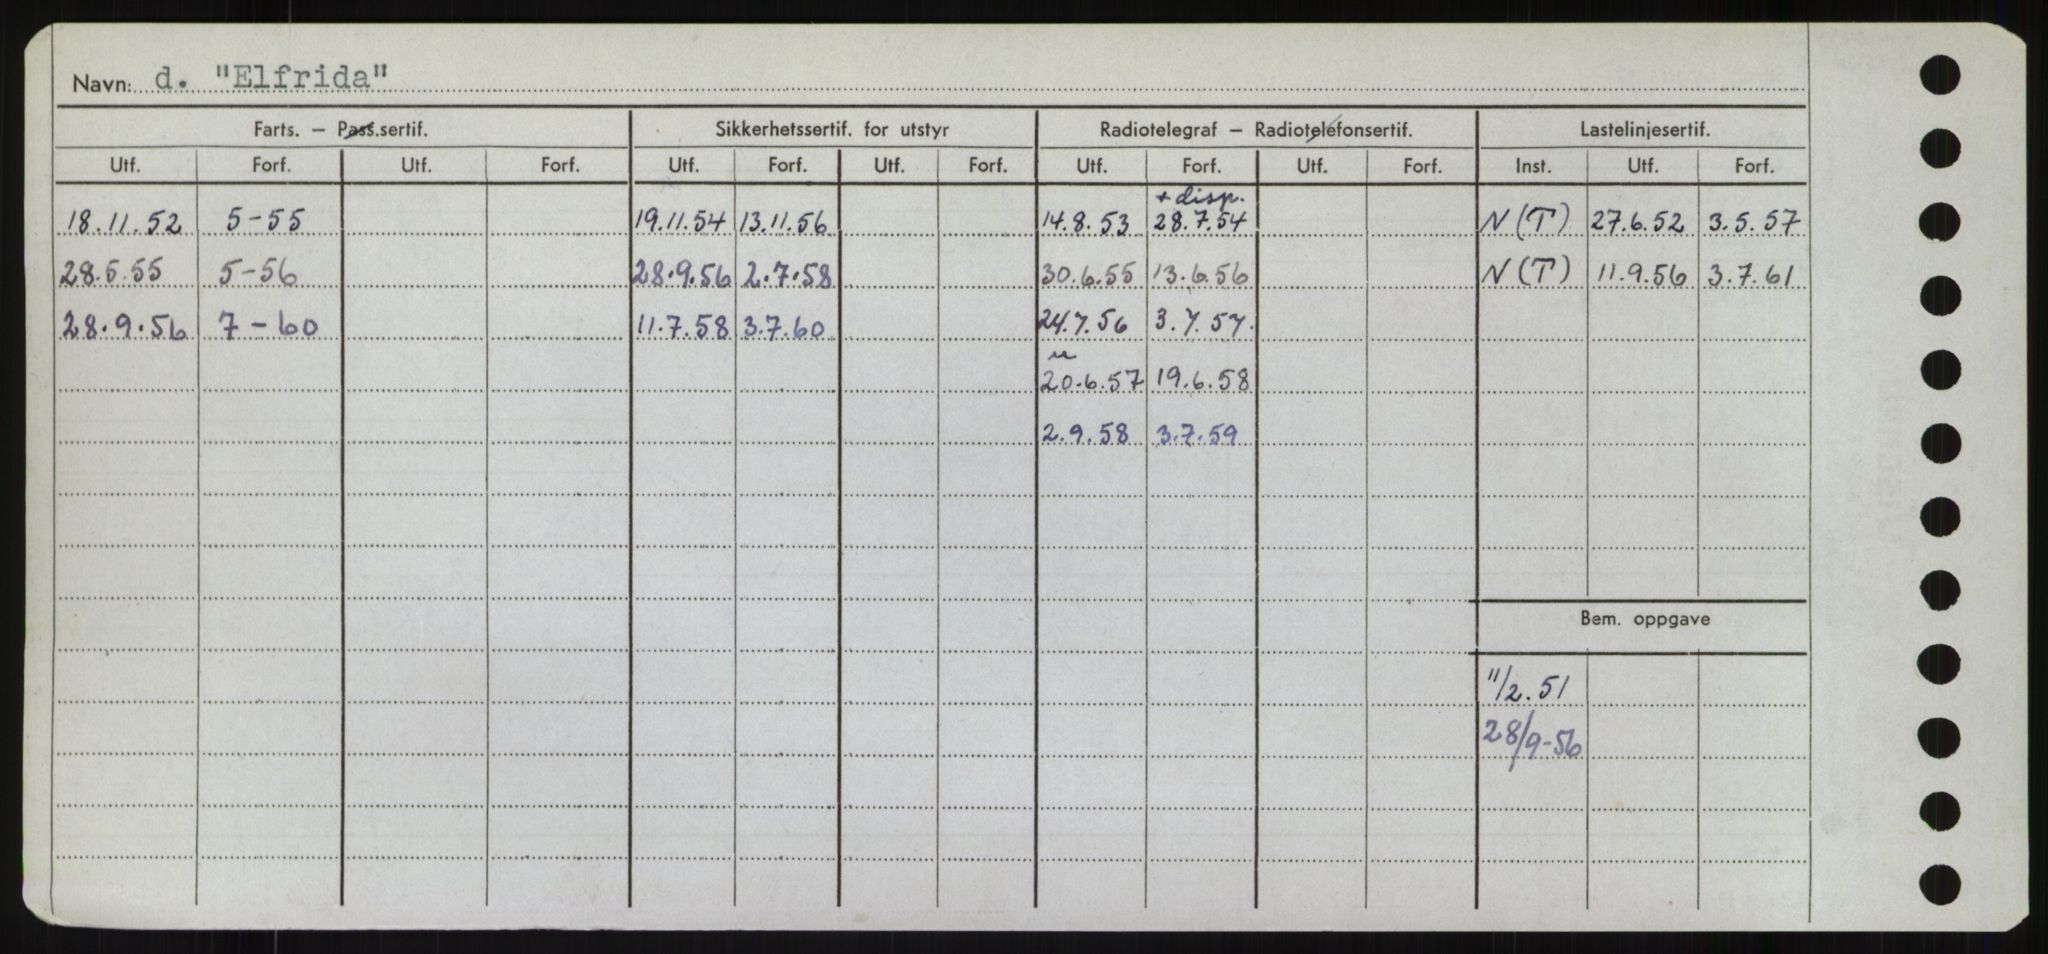 Navn: d. "Elfrida"
Farts. — Pass.sertif. Sikkerhetssertif. for utstyr Radiotelegraf — Radiotelefonsertif. Lastelinjesertif.
Utf. Forf. Utf. Forf. Utf. Forf. Utf. Forf. Utf. Forf. Utf. Forf. Inst. Utf. Forf.
+ disp.
18.11.52 5-55 19.11.54 13.11.56 14.8.53 28.7.54 N(T) 27.6.52 3.5.57
28.5.55 5-56 28.9.56 2.7.58 30.6.55 13.6.56 N(T) 11.9.56 3.7.61
28.9.56 7-60 11.7.58 3.7.60 24.7.56 3.7.57.
u
20.6.57 19.6.58
2.9.58 3.7.59
Bem. oppgave
11/2.51
28/9-56